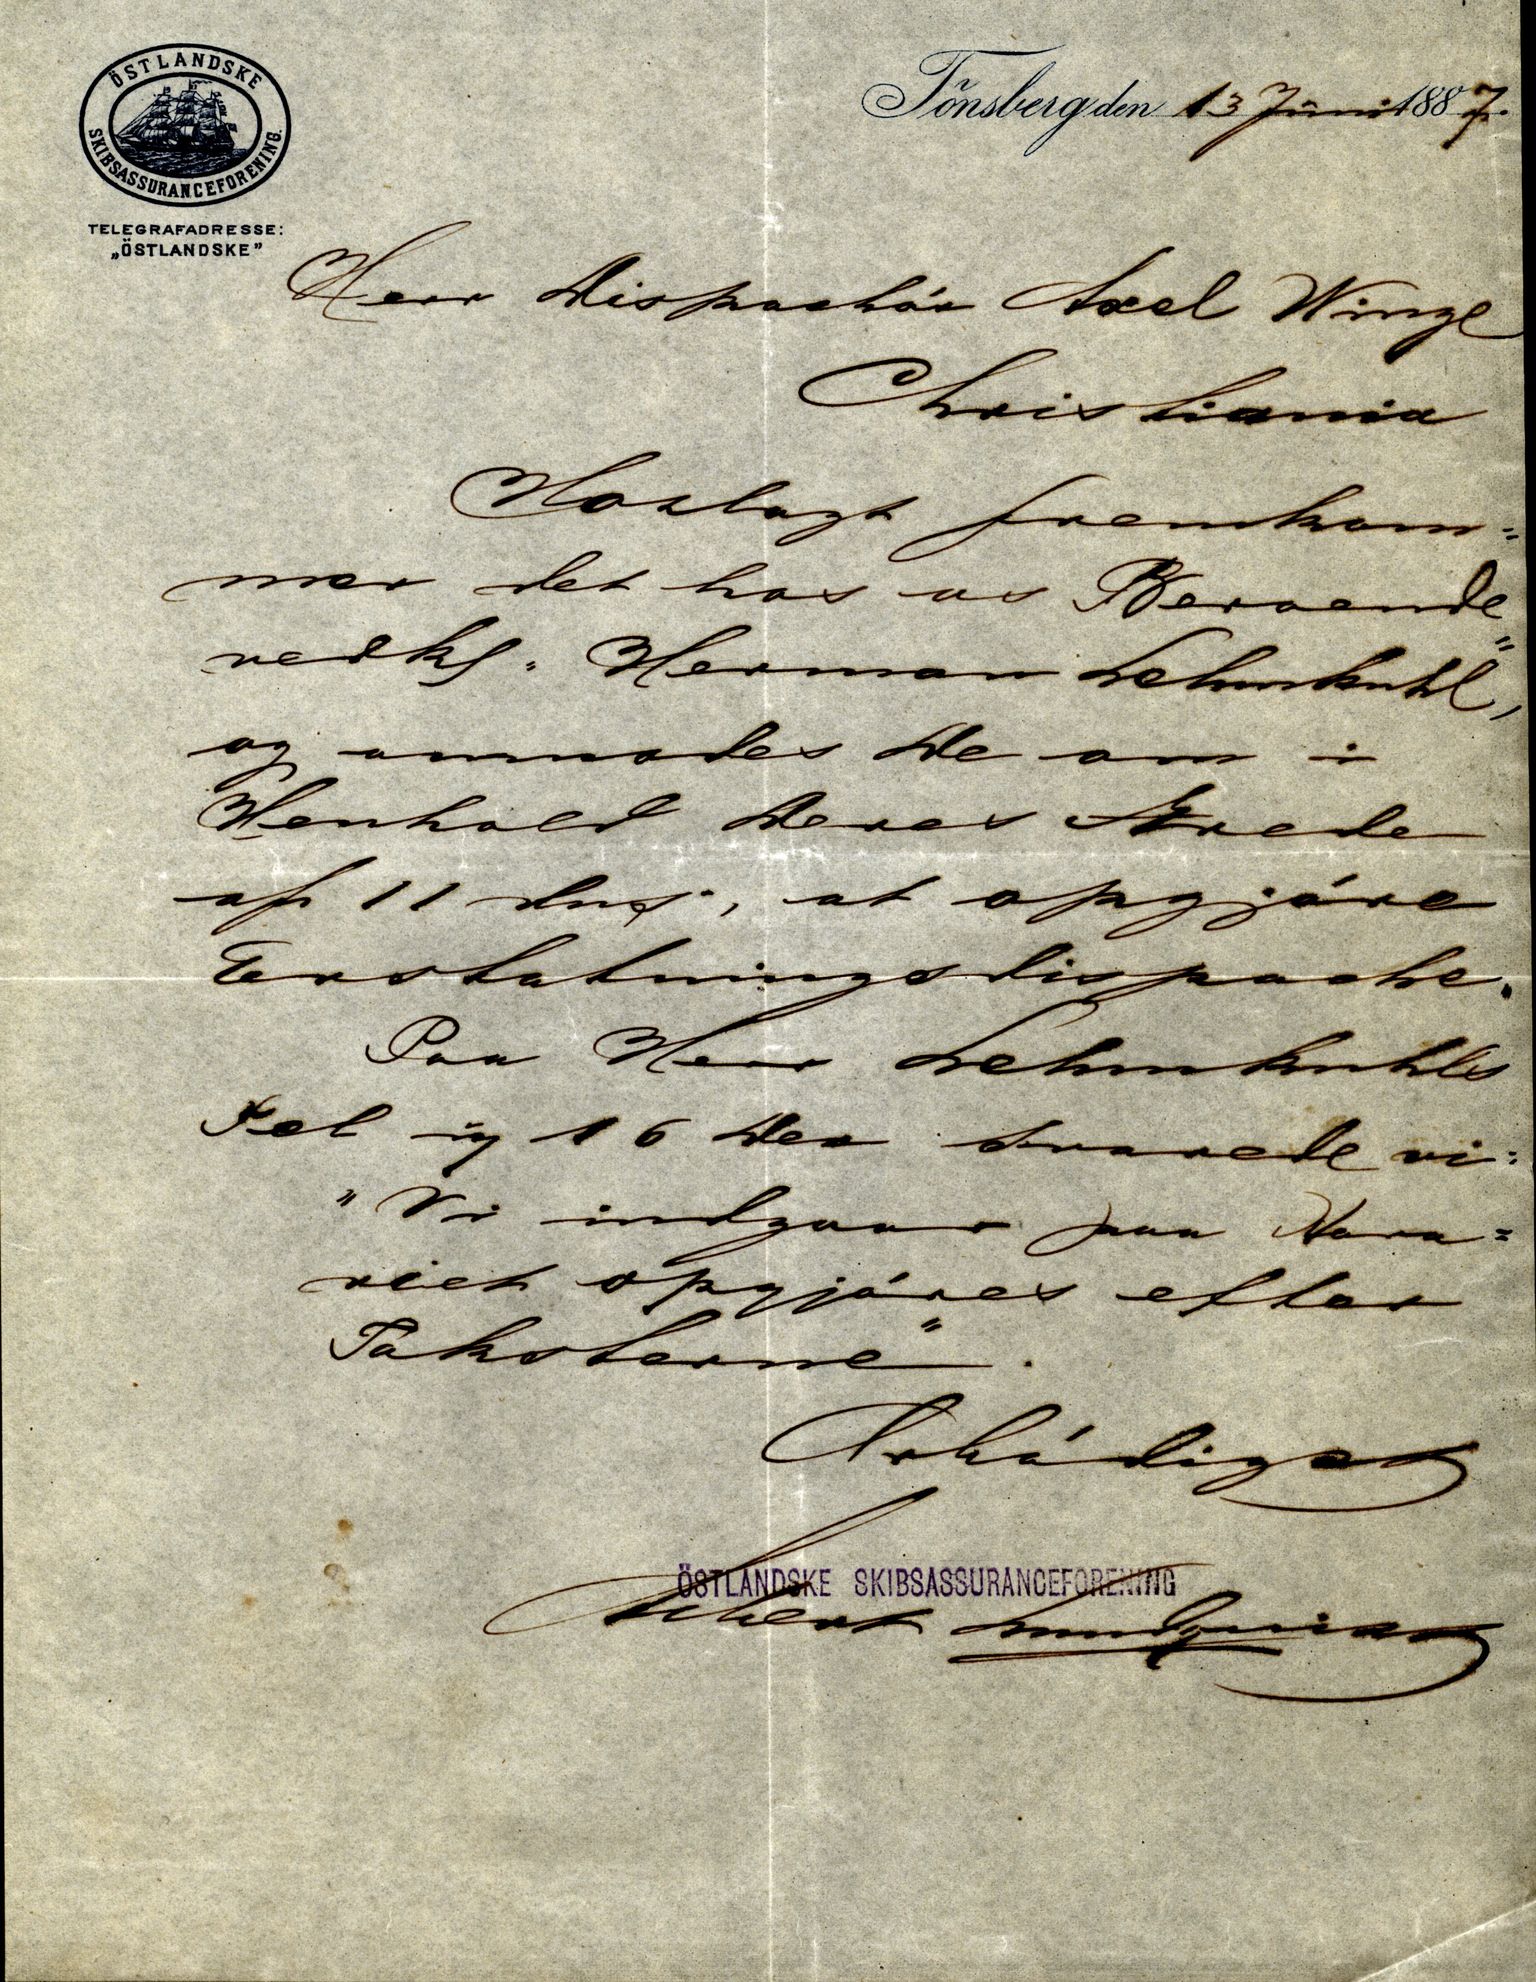 ÖSTLANDSKE
SKIBSASSURANCEFORENING.
TELEGRAFADRESSE:
„ÖSTLANDSKE”
Tönsberg den 13 Juni 1887.
Herr Dispachör Axel Winge
Christiania
Hoslagt fremkom=
mer det hos os Beroende
vedk. Herman Lehmkuhl,
og anmodes De om i
Henhold Deres Ærede
af 11 ds, at opgjöre
Erstatningsdispache.
Paa Herr Lehmkuhls
Tel 16 Der svarede vi:
" Vi indgaar paa Hava=
riet opgjöres efter
Taksterne".
Ærbödigst
ÖSTLANDSKE SKIBSASSURANCEFORENING